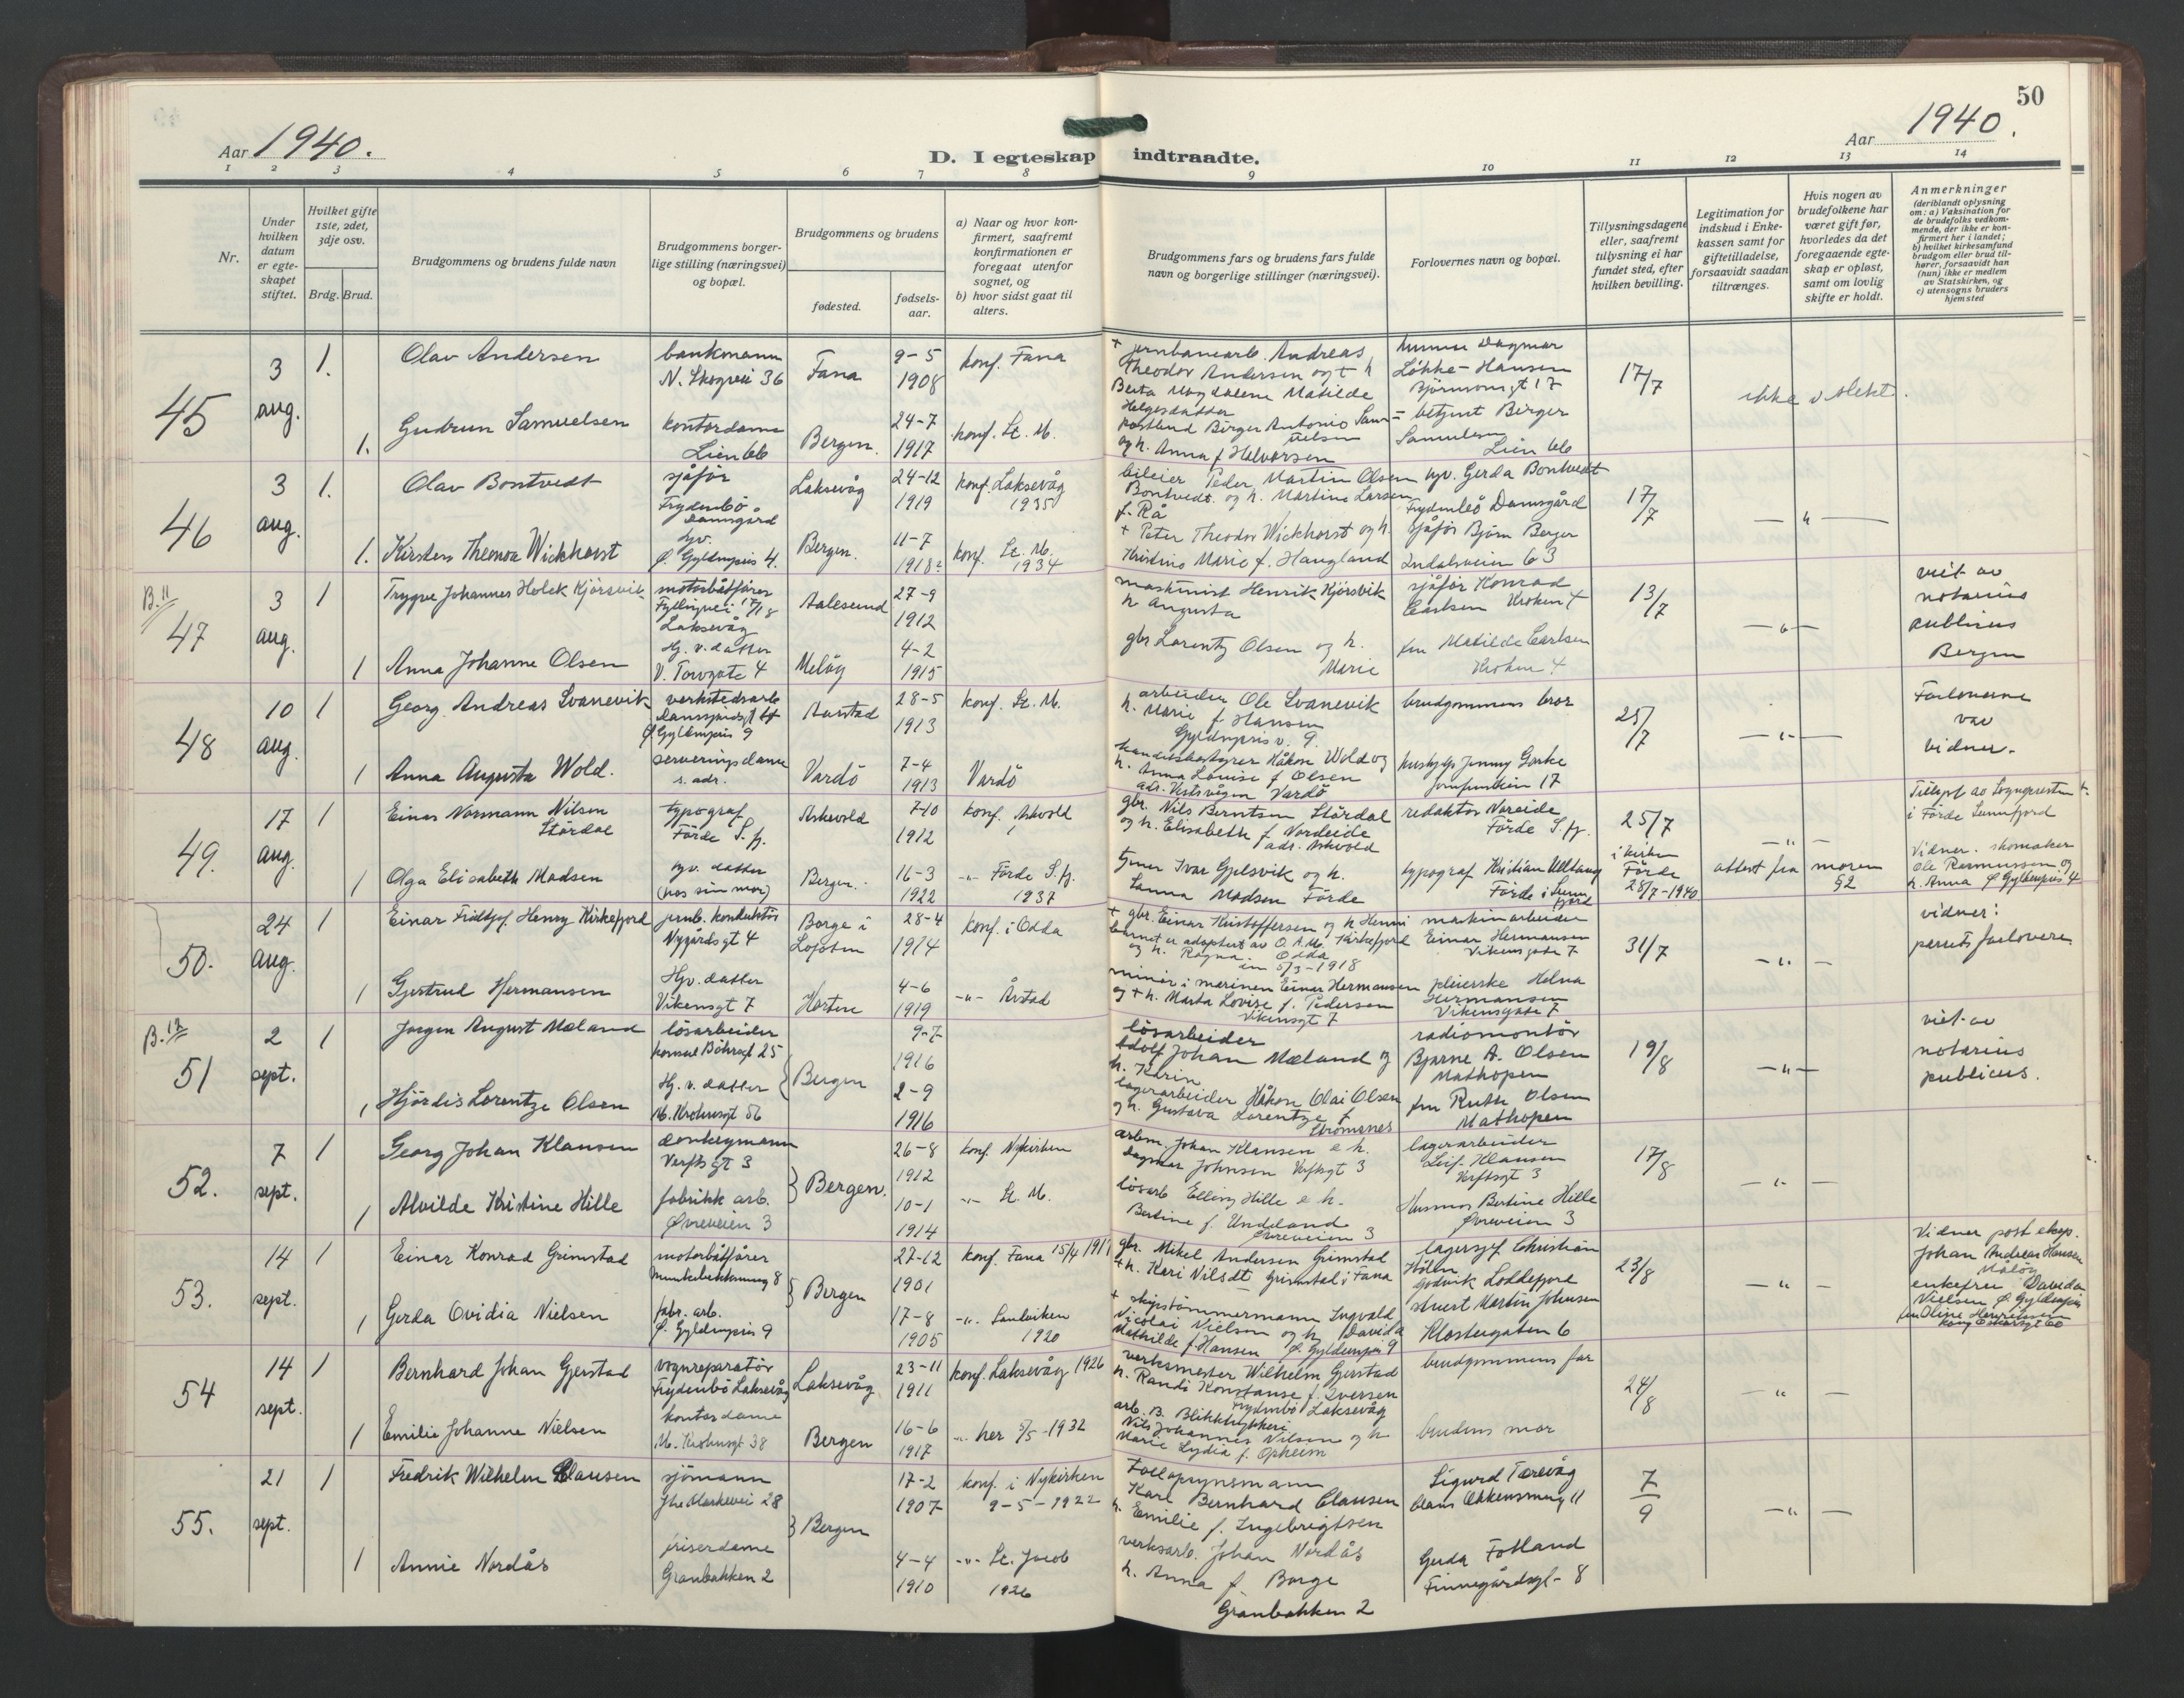 50
Aar 1940.
Aar 1940.
D. I egteskap indtraadte.
1 2 3 4 5 6 7 8 9 10 11 12 13 14
Nr.
Under hvilken datum er egteskapet stiftet.
Hvilket gifte 1ste, 2det, 3dje osv.
Brdg. Brud.
Brudgommens og brudens fulde navn
Brudgommens borgerlige stilling (næringsvei) og bopæl.
Brudgommens og brudens
fødested.
fødselsaar.
a) Naar og hvor konfirmert, saafremt konfirmationen er foregaat utenfor sognet, og
b) hvor sidst gaat til alters.
Brudgommens fars og brudens fars fulde navn og borgerlige stillinger (næringsvei).
Forlovernes navn og bopæl.
Tillysningsdagene eller, saafremt tillysning ei har fundet sted, efter hvilken bevilling.
Legitimation for indskud i Enkekassen samt for giftetilladelse, forsaavidt saadan tiltrænges.
Hvis nogen av brudefolkene har været gift før, hvorledes da det foregaaende egteskap er opløst, samt om lovlig skifte er holdt.
Anmerkninger
(deriblandt oplysning om: a) Vaksination for de brudefolks vedkommende, der ikke er konfirmert her i landet; b) hvilket kirkesamfund brudgom eller brud tilhører, forsaavidt han (hun) ikke er medlem av Statskirken, og c) utensogns bruders hjemsted
45
3 aug.
1.
Olav Andersen
bankmann
N. Skogvei 36
Fana
9-5 1908
konf. Fana
+ jernbanearb. Andreas
Theodor Andersen og + h
Berta Magdalene Matilde
Helgesdatter
Dagmar
Løkke-Hansen
Bjørnsonsgt 17
17/7
ikke v slekt.
1.
Gudrun Samuelsen
kontordame
Lien 66
Bergen.
24-7 1917
konf. St. M.
postbud Birger Antonio Samuelsen
og h. Anna f Halvorsen
betjent Birger
Samuelsen
Lien 66
46
3 aug.
1.
Olav Bontvedt
sjåför
Frydenbö
Damsgård
Laksevåg
24-12 1919
konf. Laksevåg
1935
bileier Peder Martin Olsen
Bontvedt og h. Martine Larsen
f. Rå
hv. Gerda Bontvedt
Frydenbö Damsgård
17/7
— " —
1.
Kirsten Theonoa Wickhorst
hv.
Ø. Gyldenpris 4.
Bergen.
11-7 1918
konf. St. M.
1934
+ Peter Theodor Wickhorst og h.
Kristine Marie f. Haugland
sjåför Björn Berger
Indalsveien 63
B. 11
47
3 aug.
1
Trygve Johannes Holck Kjörsvik
motorbåtförer
Fyllingsvei 178
Laksevåg
Aalesund
27-9 1912
maskinist Henrik Kjörsvik
h Augusta
sjåför Konrad
Carlsen Kroken 4
13/7
— " —
viet av
notarius
publicus
Bergen
1
Anna Johanne Olsen
Hj. v. datter
V. Torvgate 4
Melöy
4-2 1915
gbr Lorentz Olsen og h.
Marie
fru Matilde Carlsen
Kroken 4
48
10 aug.
1
Georg Andreas Svanevik
verkstedsarb.
Ø Gyldenpris 9
Aarstad
28-5 1913
konf. St. M.
arbeider Ole Svanevik
h. Marie f Hansen
Gyldenpris v. 9.
brudgommens bror
25/7
— " —
Forloverne
var
vidner.
1
Anna Augusta Wold.
serveringsdame
s. adr.
Vardö
7-4 1913
Vardö
handelsbestyrer Håkon Wold og
h. Anna Louise f Olsen
adr. Vestervågen Vardö
hushjelp Jenny Garke
Jomfrustien 17
49.
17 aug.
1
Einar Normann Nilsen
Stördal
typograf
Förde S. fj.
Askvold
7-10 1912
konf. Askvold
gbr. Nils Berntsen Stördal
og h. Elisabeth f Nordeide
adr. Askvold
redaktör Noreide
Förde S. fj.
25/7
i kirken
Förde
28/7-1940
— " —
Tillyst av Sogneprest
i Förde Sunnfjord
1
Olga Elisabeth Madsen
hv. datter
(hos sin mor)
Bergen.
16-3 1922
-"- Förde S. fj.
1937
Ivar Gjelsvik og h.
Sanna Madsen Förde
typograf Kristian Ulltang
Förde i Sunnfjord
attest fra moren
§2
Vidner. skomaker
Ole Rasmussen og
h. Anna Ø Gyldenpris 4
50.
24 aug.
1
Einar Fridtjof Henry Kirkefjord
jernb. konduktör
Nygårdsgt 4
Borge i
Lofoten
28-4 1914
konf. i Odda
+ gbr. Einar Kristoffersen og h Henni
barnet er adoptert av O. A. M. Kirkefjord
og h. Ragna. Odda
5/3-1918
maskinarbeider
Einar Hermansen
Vikensgate 7
31/7
— " —
vidner:
parets forlovere
1
Gjertrud Hermansen
Hjv. datter
Vikensgt 7
Horten
4-6 1919
-"- Årstad
minör i marinen Einar Hermansen
og + h. Marta Lovise f. Pedersen
Vikensgt 7
pleierske Helna
Hermansen
Vikensgate 7
B. 12
51
2 sept.
1
Jörgen August Mæland
lösarbeider
konsul Börsgt 25
Bergen
9-7 1916
lösarbeider
Adolf Johan Mæland og
h. Karin
radiomontör
Bjarne A. Olsen
Mathopen
19/8
— " —
viet av
notarius
publicus.
1
Hjördis Lorentze Olsen
Hj. v. datter
M. Krohnsgt 56
2-9 1916
lagerarbeider Håkon Olai Olsen
og h. Gustava Lorentze f
Strömsnes
fru Ruth Olsen
Mathopen
52.
7 sept.
1
Georg Johan Klausen
donkeymann
Verftsgt 3
Bergen.
26-8 1912
konf. Nykirken
arbm. Johan Klausen e h.
Dagmar Johnsen Verftsgt 3
lagerarbeider
Leif Klausen
Verftsgt 3
17/8
— " —
1
Alvilde Kristine Hille
fabrikk arb.
Øvreveien 3
10-1 1914
-"- St. M.
lösarb Elling Hille e h.
Bertine f. Undeland
Øvreveien 3
Husmor Bertine Hille
Øvreveien 3
53.
14 sept.
1
Einar Konrad Grimstad
motorbåtförer
Munkebotten 8
Bergen
27-12 1901
konf. Fana 15/4 1917
gbr. Mikel Andersen Grimstad
+ h. Kari Nilsdt Grimstad i Fana
lagersjef Christian
Hölen
Godvik Loddefjord
23/8
— " —
Vidner post eksp.
Johan Andreas Hansen
Målöy
enkefru Davida
Nielsen Ø. Gyldenpris
fru Oline Henriksen
Kong Oskarsgt 60
1
Gerda Ovidia Nielsen
fabr. arb.
Ø. Gyldenpris 9
17-8 1905
-"- Sandviken
1920
+ skipstömmermann Ingvald
Nicolai Nielsen og h Davida
Mathilde f. Hansen Ø. Gyldenpris 9
stuert Martin Johnsen
Klostergaten 6
54
14 sept.
1
Bernhard Johan Gjerstad
vognreparatör
Frydenbö Laksevåg
Laksevåg
23-11 1911
konf. Laksevåg 1926
verksmester Wilhelm Gjerstad
h. Randi Konstanse f. Iversen
Frydenbö Laksevåg
brudgommens far
24/8
— " —
1
Emilie Johanne Nielsen
kontordame
M. Krohnsgt 38
Bergen
16-6 1917
-"- her 5/5-1932
arb. B. Blikktrykkeri
Nils Johannes Nilsen og h
Marie Lydia f. Opheim
brudens mor
55.
21 sept.
1
Fredrik Wilhelm Clausen
sjömann
Ytre Markevei 28
Bergen
17-2 1907
konf. i Nykirken
9-5-1922
Tolloppsynsmann
Karl Bernhard Clausen
h. Emilie f. Ingebrigtsen
Sigurd Tærevåg
Claus Okkensmug 11
7/9
— " —
1
Annie Nordås
friserdame
Granbakken 2
4-4 1910
-"- St. Jacob
1926
verksarb. Johan Nordås
h. Anna f. Borge
Granbakken 2
Gerda Fotland
Finnegårdsgt- 8